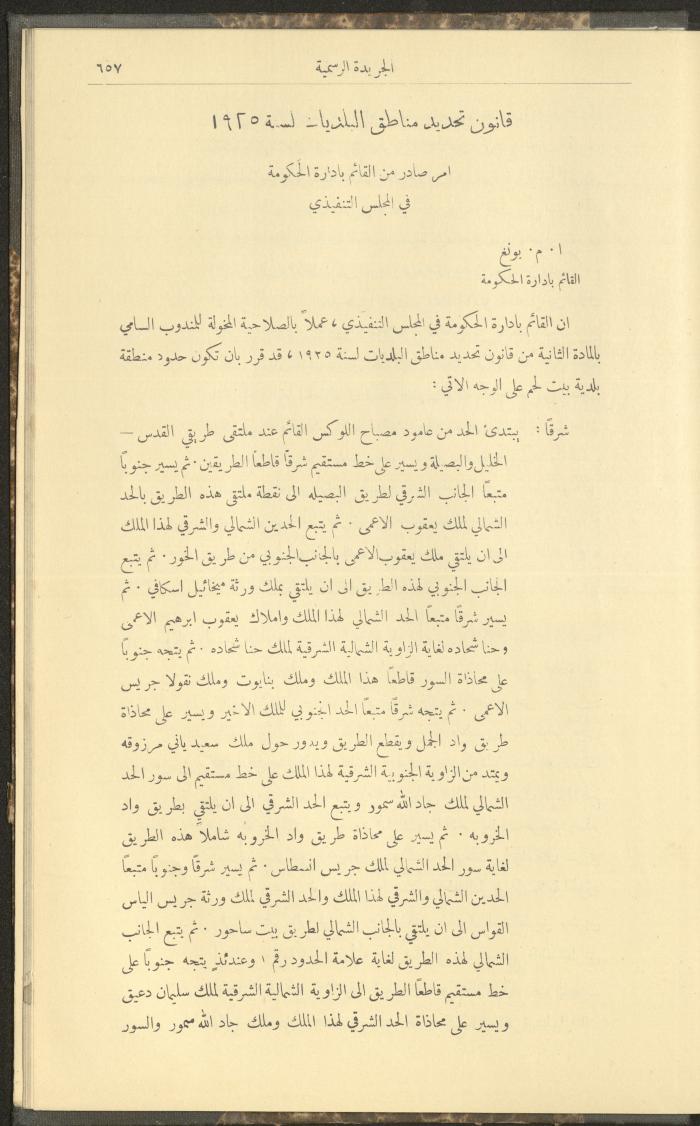 الجريدة الرسمية ٦٥٧
قانون تحديد مناطق البلديات لسنة ١٩٢٥
امر صادر من القائم بادارة الحكومة
في المجلس التنفيذي
ا ٠ م ٠ يونغ
القائم بادارة الحكومة
ان القائم بادارة الحكومة في المجلس التنفيذي ، عملاً بالصلاحية المخولة للمندوب السامي
بالمادة الثانية من قانون تحديد مناطق البلديات لسنة ١٩٢٥ ، قد قرر بان تكون حدود منطقة
بلدية بيت لحم على الوجه الاتي :
شرقًا : يبتدئ الحد من عامود مصباح اللوكس القائم عند ملتقى طريقي القدس —
الخليل والبصيلة ويسير على خط مستقيم شرقًا قاطعًا الطريقين ٠ ثم يسير جنوبًا
متبعًا الجانب الشرقي لطريق البصيله الى نقطة ملتقى هذه الطريق بالحد
الشمالي لملك يعقوب الاعمى ٠ ثم يتبع الحدين الشمالي والشرقي لهذا الملك
الى ان يلتقي ملك يعقوب الاعمى بالجانب الجنوبي من طريق الخور ٠ ثم يتبع
الجانب الجنوبي لهذه الطريق الى ان يلتقي بملك ورثة ميخائيل اسكافي ٠ ثم
يسير شرقًا متبعًا الحد الشمالي لهذا الملك واملاك يعقوب ابرهيم الاعمى
وحنا شحاده لغاية الزاوية الشمالية الشرقية لملك حنا شحاده ٠ ثم يتجه جنوبًا
على محاذاة السور قاطعًا هذا الملك وملك بنايوت وملك نقولا جريس
الاعمى ٠ ثم يتجه شرقًا متبعًا الحد الجنوبي للملك الاخير ويسير على محاذاة
طريق واد الجمل ويقطع الطريق ويدور حول ملك سعيد ياني مرزوقه
ويمتد من الزاوية الجنوبية الشرقية لهذا الملك على خط مستقيم الى سور الحد
الشمالي لملك جاد الله سمور ويتبع الحد الشرقي الى ان يلتقي بطريق واد
الخروبه ٠ ثم يسير على محاذاة طريق واد الخروبه شاملاً هذه الطريق
لغاية سور الحد الشمالي لملك جريس انسطاس ٠ ثم يسير شرقًا وجنوبًا متبعًا
الحدين الشمالي والشرقي لهذا الملك والحد الشرقي لملك ورثة جريس الياس
القواس الى ان يلتقي بالجانب الشمالي لطريق بيت ساحور ٠ ثم يتبع الجانب
الشمالي لهذه الطريق لغاية علامة الحدود رقم ١ وعندئذٍ يتجه جنوبًا على
خط مستقيم قاطعًا الطريق الى الزاوية الشمالية الشرقية لملك سليمان دعيق
ويسير على محاذاة الحد الشرقي لهذا الملك وملك جاد الله سمور والسور